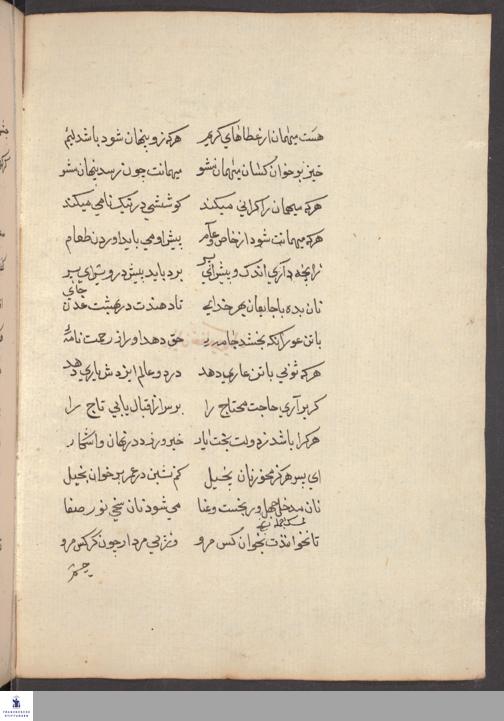 هست میهمان از عطاهای کریم هرکه زو پنهان شود باشد لئیم
خیز بر خوان کسان میهمان مشو میهمانت چون رسد پنهان مشو
هرکه میهمان را کرامی میکند کوششی در نیک نامی میکند
هرکه مهمانت شود از خاص و عام پیش او می باید اوردن طعام
زانچه داری اندک و بیش ای پسر برد باید پیش درویش ای پسر
نان بده با جایعان بهر خدای تا دهندت در بهشت عدن جای
با تن عور انکه بخشد جامه حق دهد او را ز رحمت نامه
هرکه ثوبی با تن عاری دهد در دو عالم ایزدش یاری دهد
کر براری حاجت محتاج را بر سر از اقبال یابی تاج را
هرکرا باشد ز دولت بخت یار خیر ورزد در نهان و اشکار
ای پسر هرکز مخور نان بخیل کم نشین در عمر بر خوان بخیل
نان ممسک جمله رنجست و عنا می شود نان سخی نور صفا
تا نخوانندت بخوان کس مرو در پی مردار چون کرکس مرو
چشم
FRANCKESCHE STIFTUNGEN